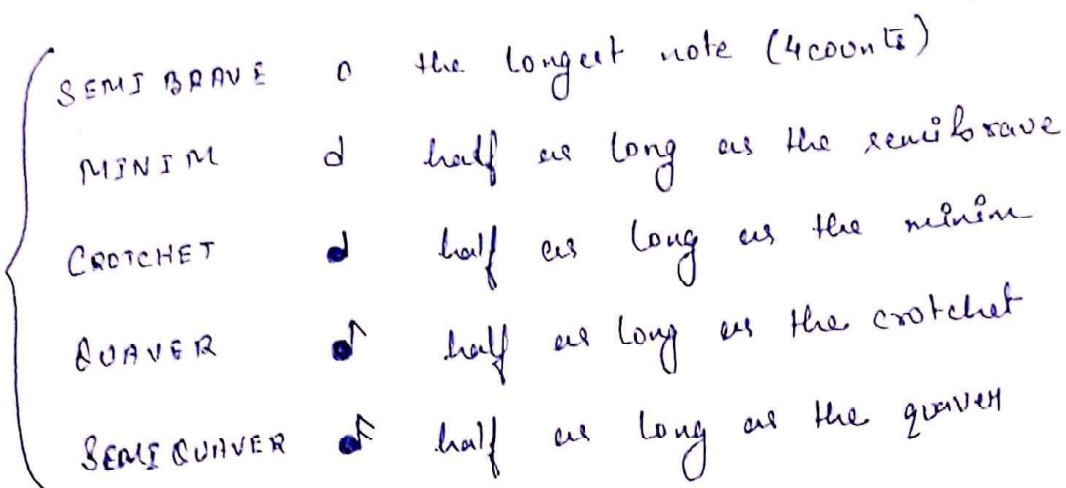 SEMI BRAVE o the longest note (4 counts)
MINIM 𝅗𝅥 half as long as the semibrave
CROTCHET ♩ half as long as the minim
QUAVER ♪ half as long as the crotchet
SEMI QUAVER 𝅘𝅥𝅯 half as long as the quaver